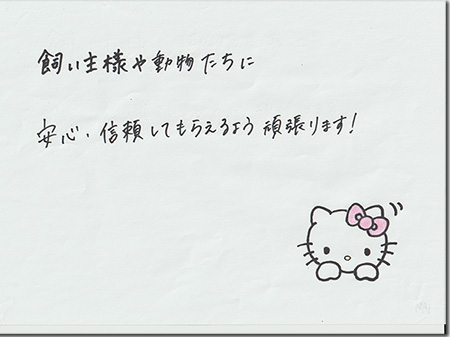 飼い主様や動物たちに
安心、信頼してもらえるよう頑張ります!